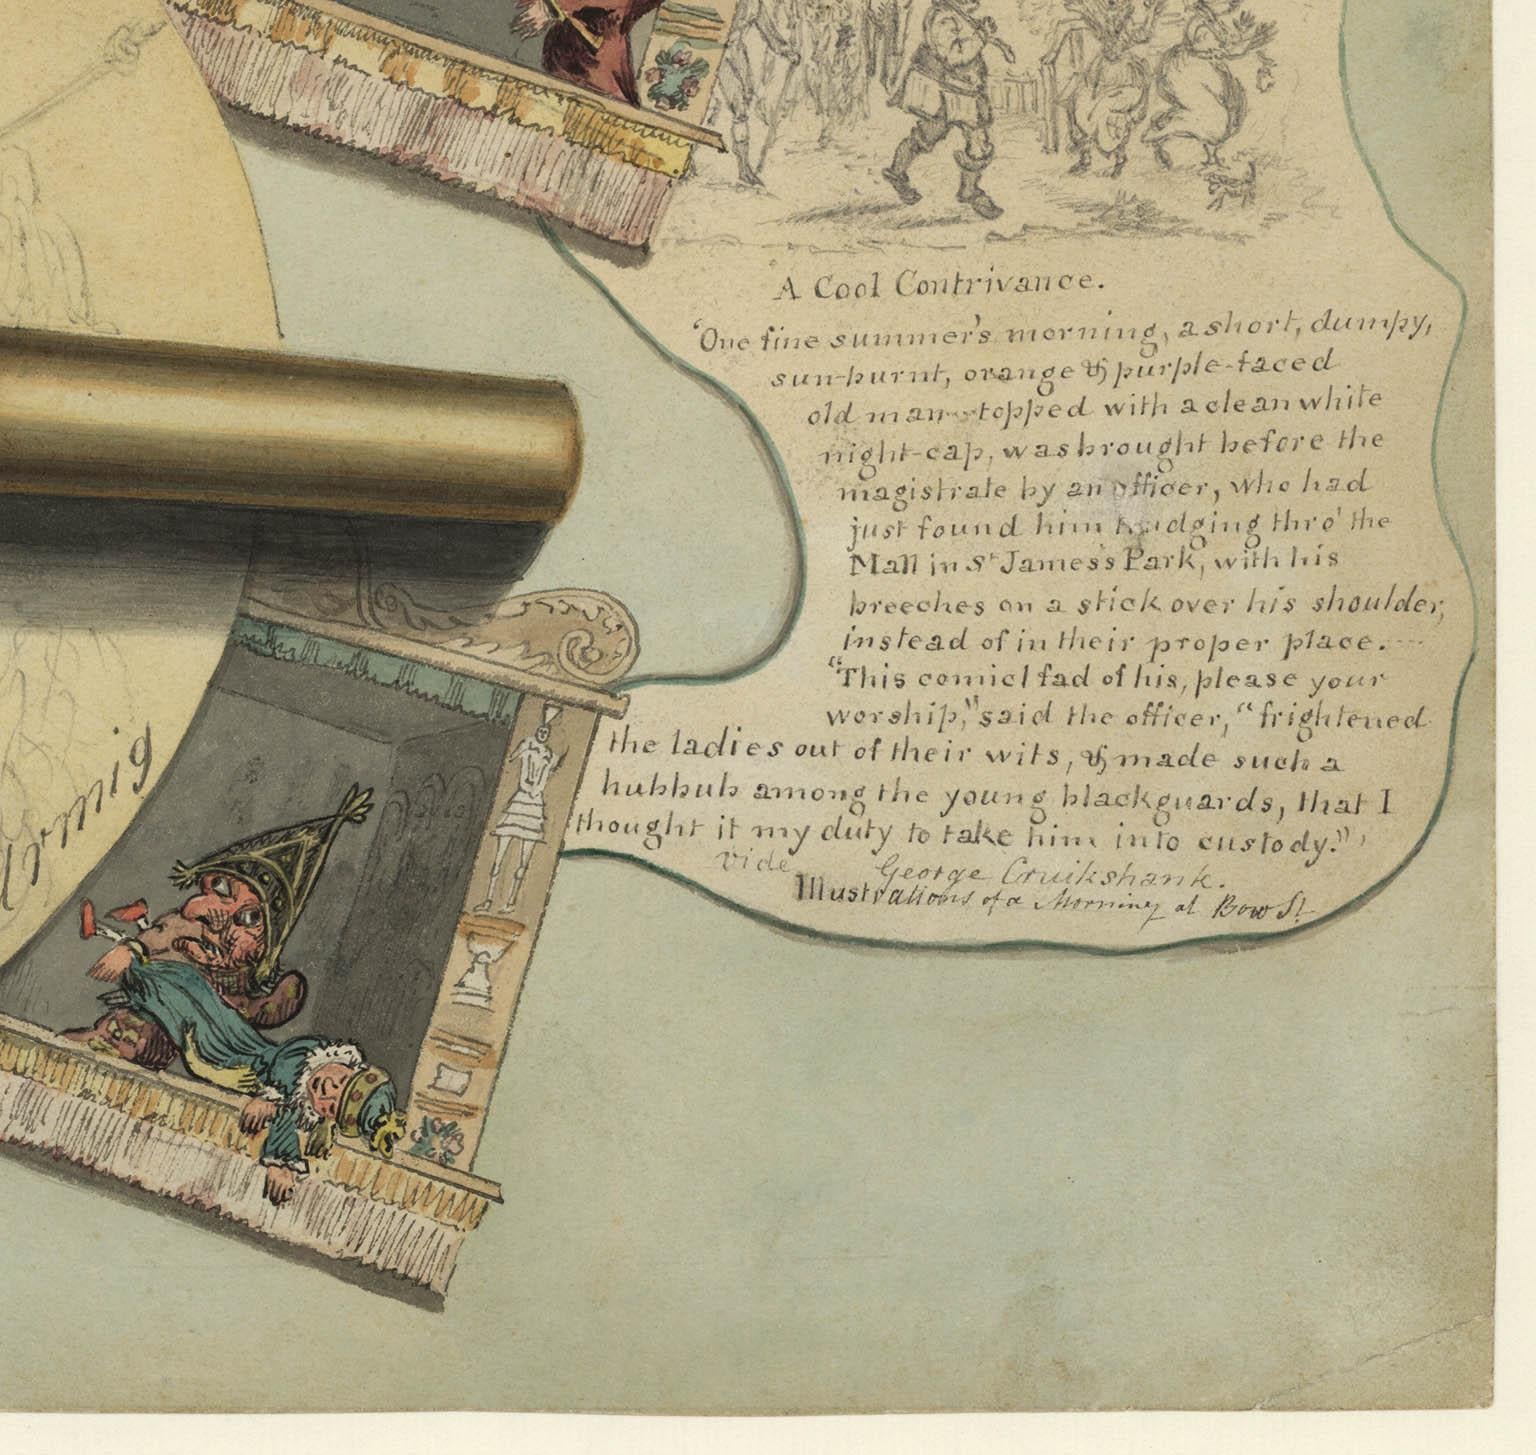 A Cool Contrivance.
"One fine summer's morning, a short, dumpy,
sun-burnt, orange & purple-faced
old man topped with a clean white
night-cap, was brought before the
magistrate by an officer, who had
just found him trudging thro' the
Mall in St James's Park, with his
breeches on a stick over his shoulder,
instead of in their proper place.----
"This comicl fad of his, please your
worship," said the officer, "frightened
the ladies out of their wits, & made such a
hubbub among the young blackguards, that I
thought it my duty to take him into custody."
Vide George Cruikshank.
Illustrations of a Morning at Bow St.